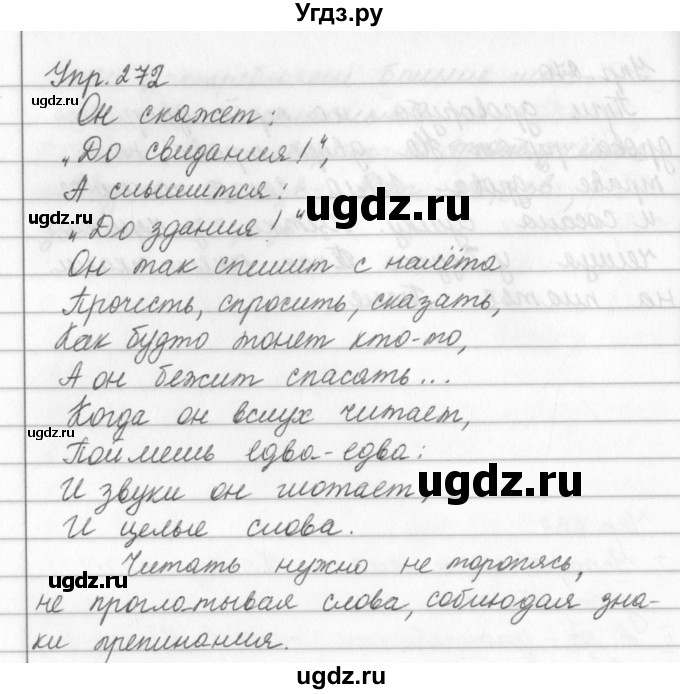 Угдз.ру
Упр. 272
Он скажет:
„До свидания!“,
А слышится:
„До здания!“
Он так спешит с налёта
Прочесть, спросить, сказать,
Как будто тонет кто-то,
А он бежит спасать...
Когда он вслух читает,
Поймёшь едва-едва:
И звуки он глотает,
И целые слова.
Читать нужно не торопясь,
не проглатывая слова, соблюдая зна-
ки препинания.
ugdz.ru
ugdz.ru
ugdz.ru
ugdz.ru
ugdz.ru
ugdz.ru
ugdz.ru
ugdz.ru